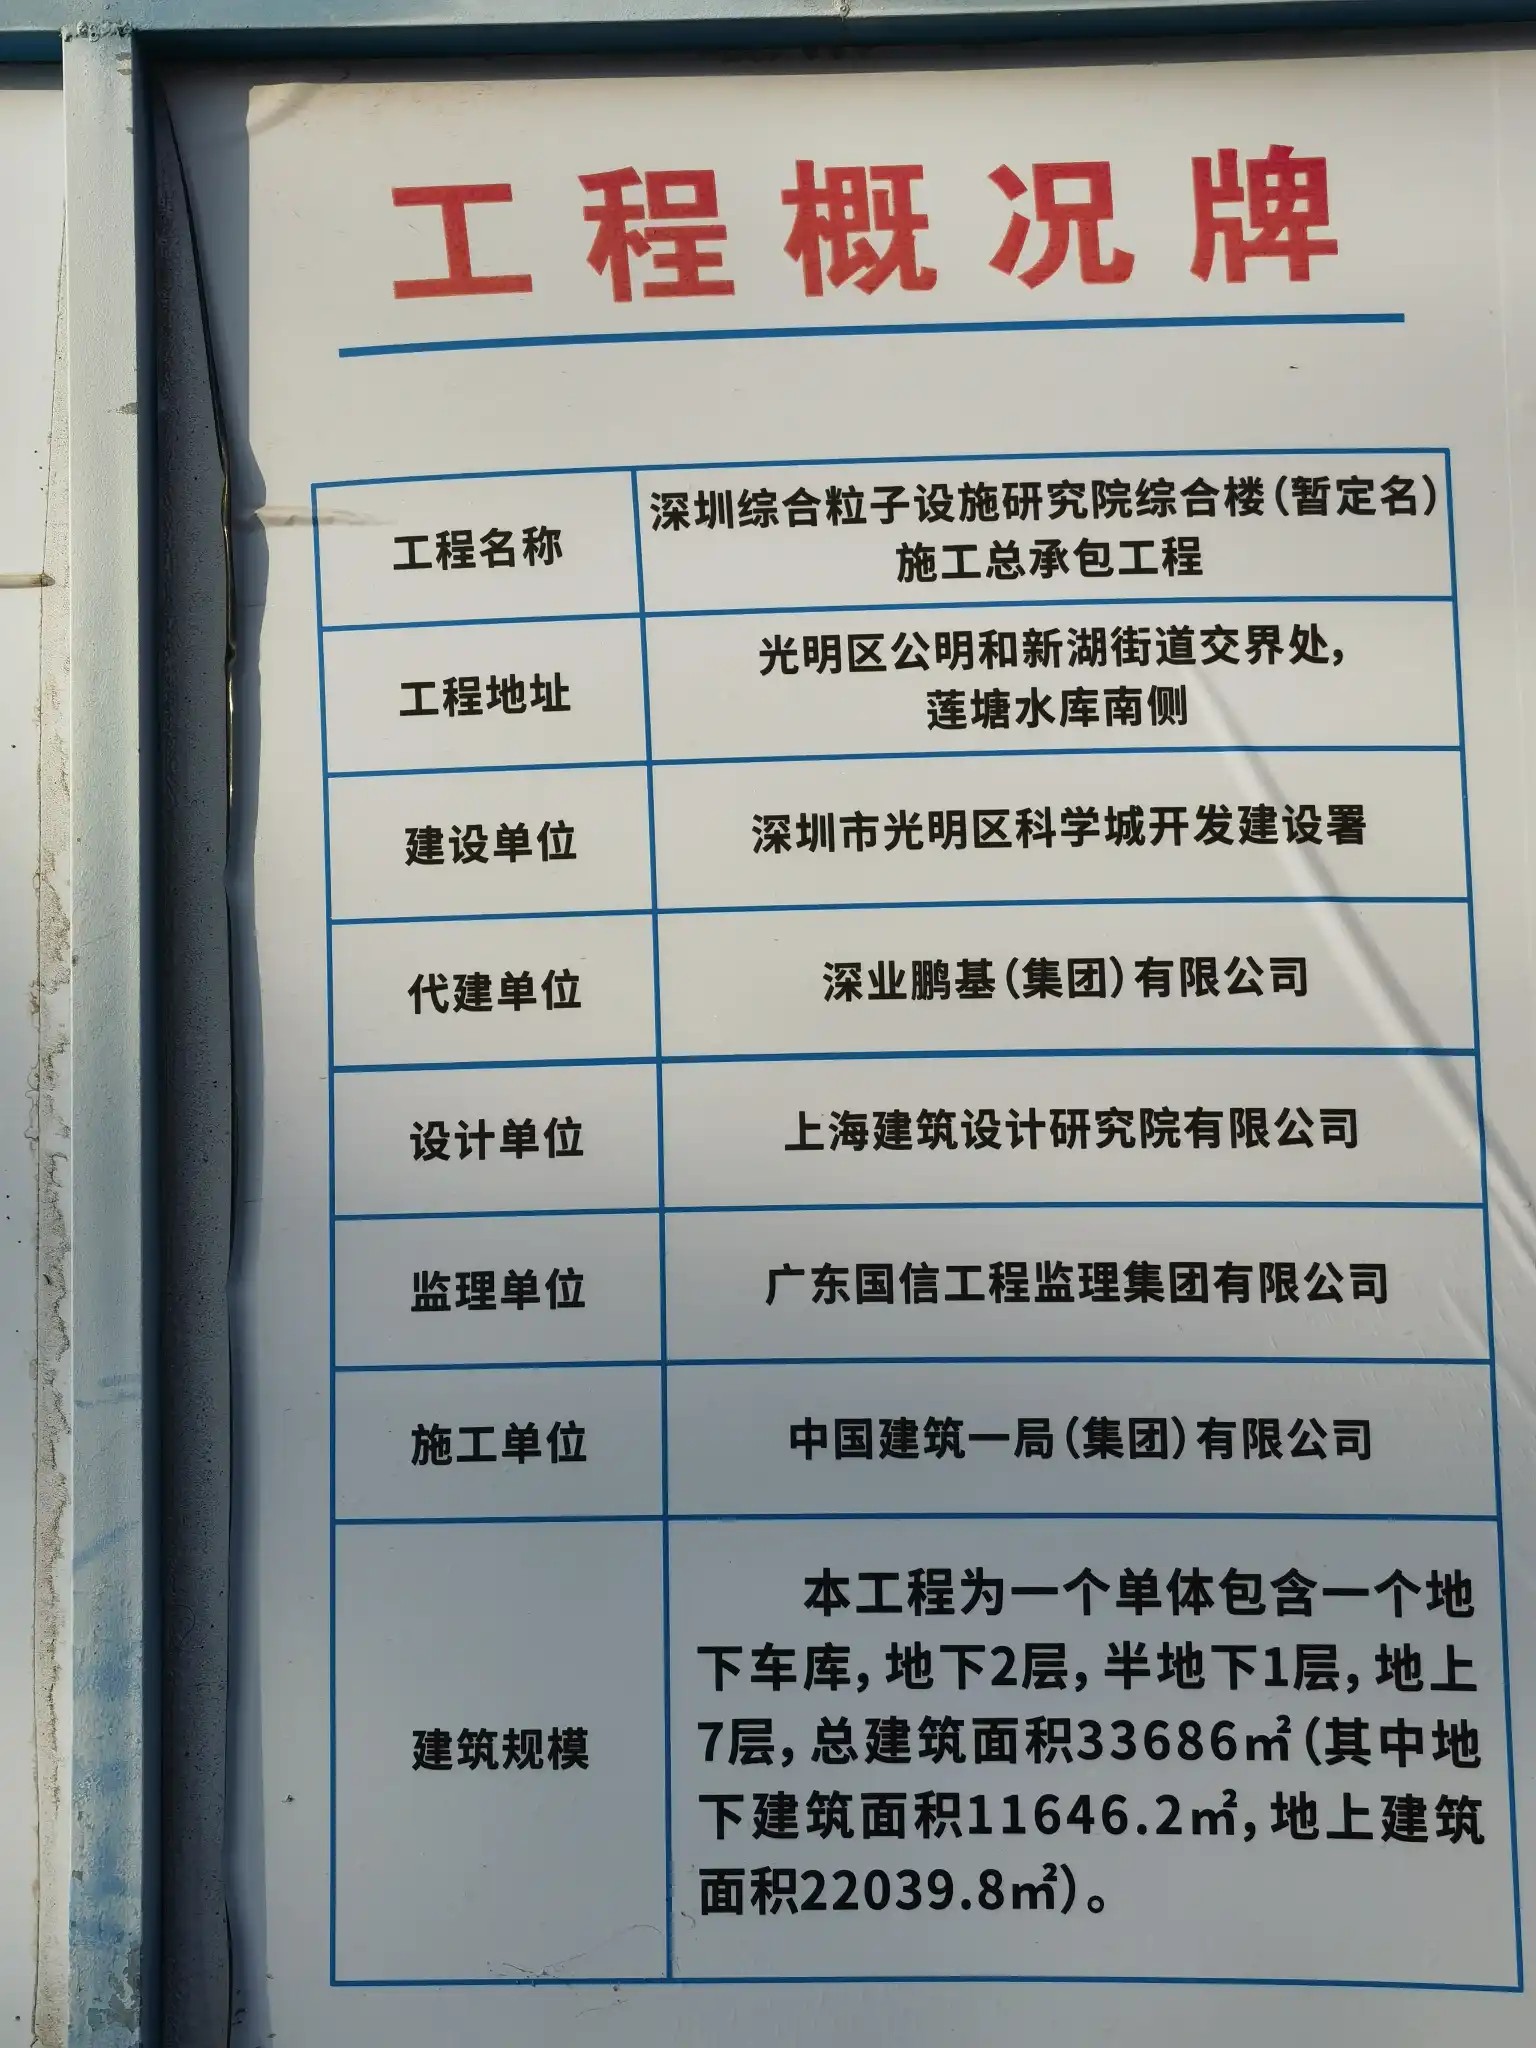 工程概况牌
工程名称
深圳综合粒子设施研究院综合楼（暂定名）
施工总承包工程
工程地址
光明区公明和新湖街道交界处，
莲塘水库南侧
建设单位
深圳市光明区科学城开发建设署
代建单位
深业鹏基（集团）有限公司
设计单位
上海建筑设计研究院有限公司
监理单位
广东国信工程监理集团有限公司
施工单位
中国建筑一局（集团）有限公司
建筑规模
本工程为一个单体包含一个地
下车库，地下2层，半地下1层，地上
7层，总建筑面积33686㎡（其中地
下建筑面积11646.2㎡，地上建筑
面积22039.8㎡）。